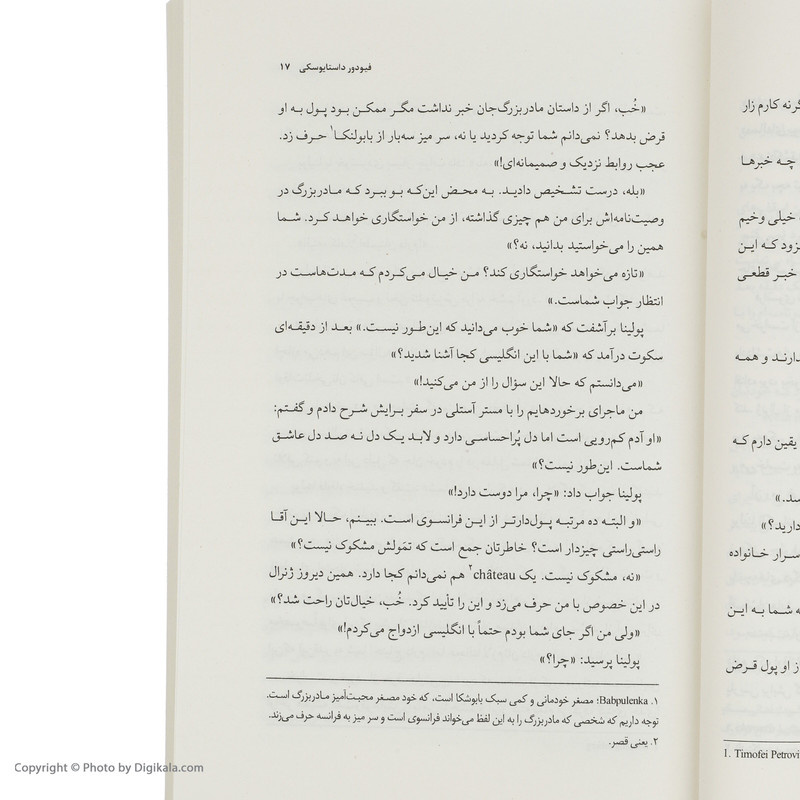 فیودور داستایوسکی ۱۷
«خُب، اگر از داستان مادربزرگ‌جان خبر نداشت مگر ممکن بود پول به او
قرض بدهد؟ نمی‌دانم شما توجه کردید یا نه، سر میز سه‌بار از بابولنکا۱ حرف زد.
عجب روابط نزدیک و صمیمانه‌ای!»
«بله، درست تشخیص دادید. به محض این‌که بو ببرد که مادربزرگ در
وصیت‌نامه‌اش برای من هم چیزی گذاشته، از من خواستگاری خواهد کرد. شما
همین را می‌خواستید بدانید، نه؟»
«تازه می‌خواهد خواستگاری کند؟ من خیال می‌کردم که مدت‌هاست در
انتظار جواب شماست.»
پولینا برآشفت که «شما خوب می‌دانید که این‌طور نیست.» بعد از دقیقه‌ای
سکوت درآمد که «شما با این انگلیسی کجا آشنا شدید؟»
«می‌دانستم که حالا این سؤال را از من می‌کنید!»
من ماجرای برخوردهایم را با مستر آستلی در سفر برایش شرح دادم و گفتم:
«او آدم کم‌رویی است اما دل پُراحساسی دارد و لابد یک دل نه صد دل عاشق
شماست. این‌طور نیست؟»
پولینا جواب داد: «چرا، مرا دوست دارد!»
«و البته ده مرتبه پول‌دارتر از این فرانسوی است. ببینم، حالا این آقا
راستی‌راستی چیزدار است؟ خاطرتان جمع است که تمَولش مشکوک نیست؟»
«نه، مشکوک نیست. یک château۲ هم نمی‌دانم کجا دارد. همین دیروز ژنرال
در این خصوص با من حرف می‌زد و این را تأیید کرد. خُب، خیال‌تان راحت شد؟»
«ولی من اگر جای شما بودم حتماً با انگلیسی ازدواج می‌کردم!»
پولینا پرسید: «چرا؟»
۱. Babpulenka؛ مصغر خودمانی و کمی سبک بابوشکا است، که خود مصغر محبت‌آمیز مادربزرگ است.
توجه داریم که شخصی که مادربزرگ را به این لفظ می‌خواند فرانسوی است و سر میز به فرانسه حرف می‌زند.
۲. یعنی قصر.
گرنه کارم زار
چه خبرها
خیلی وخیم
زود که این
خبر قطعی
دارند و همه
یقین دارم که
سد.»
دارید؟»
سرار خانواده
ه شما به این
از او پول قرض
1. Timofei Petrovi
Copyright © Photo by Digikala.com